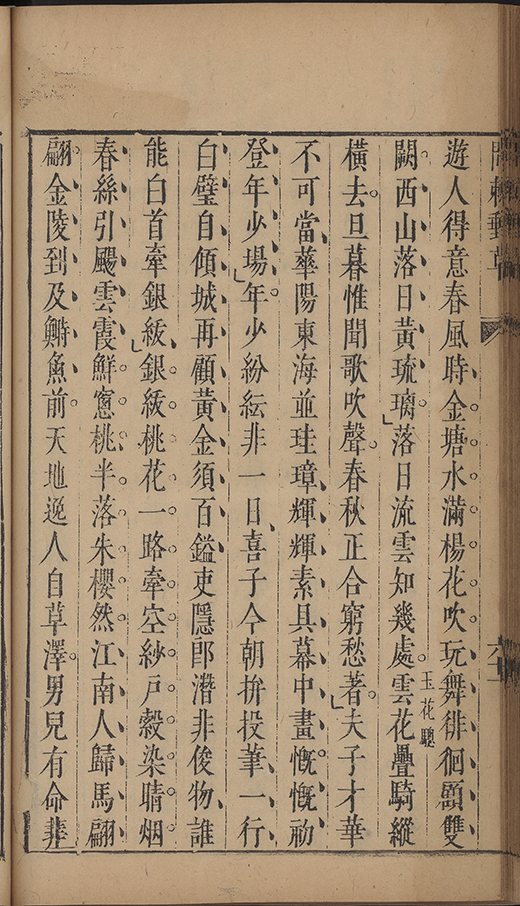 問棘郵草
六十一
遊人得意春風時金塘水滿楊花吹玩舞徘徊顧雙
闕西山落日黃琉璃落日流雲知幾處雲花疊騎縱玉花驄
橫去旦暮惟聞歌吹聲春秋正合窮愁著夫子才華
不可當華陽東海並珪璋輝輝素具幕中畫慨慨初
登年少場年少紛紜非一日喜子今朝拚投筆一行
白璧自傾城再顧黃金須百鎰吏隱郎潛非俊物誰
能白首牽銀紱銀紱桃花一路牽空紗戶縠染晴烟
春絲引颺雲霞鮮窻桃半落朱櫻然江南人歸馬翩
翩金陵到及鰣魚前天地逸人自草澤男兒有命非